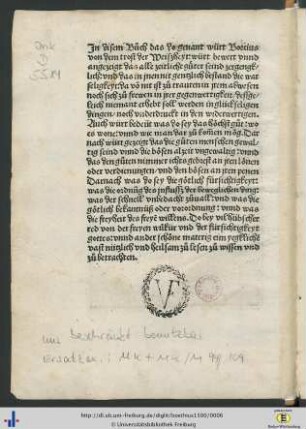 Ink
D
5511
In disem Bůch das do genant würt Boecius
von dem trost der Weißheyt würt bewert vnnd
angezeigt das alle zeitliche güter seind zergengk-
lich: vnd das in jnen nit gentzlich bestand die war
seligkeyt: da võ nit ist zů trauren in jrem abwesen
noch sich zů freuwen in jrer gegenwertigkeit. Deßge-
leich niemant erhebt soll werden in glückseligen
dingen/ noch vnderdruckt in den widerwertigen.
Auch würt bedeüt was do sey das höchst gůt: wo
es wone: vnnd wie man dar zů kummen mög. Dar
nach würt gezeigt das die gůten menschen gewal-
tig seind vnnd die bösen alzeit vngewaltig: vnnd
das den gůten nimmer ichts gebrist an jren lönen
oder verdienungen: vnd den bösen an jren penen
Darnach was do sey die götlich fürsichtigkeyt:
was die ordnũg des zufluß der beweglichen ding:
was der schnell vnbedacht zůuall: vnd was die
götlich bekantnüß oder vorordnung: vnnd was
die freyheit des freyen willens. Do bey vil hübscher
red von der freyen wilkür vnd der fürsichtigkeyt
gottes: vnnd ander schöne matery ein yegklichē
vast nützlich vnd heilsam zů lesen zů wissen vnd
zů betrachten.
VF
nur beschränkt benutzbar
http://dl.ub.uni-freiburg.de/diglit/boethius1500/0006
© Universitätsbibliothek Freiburg
Baden-Württemberg